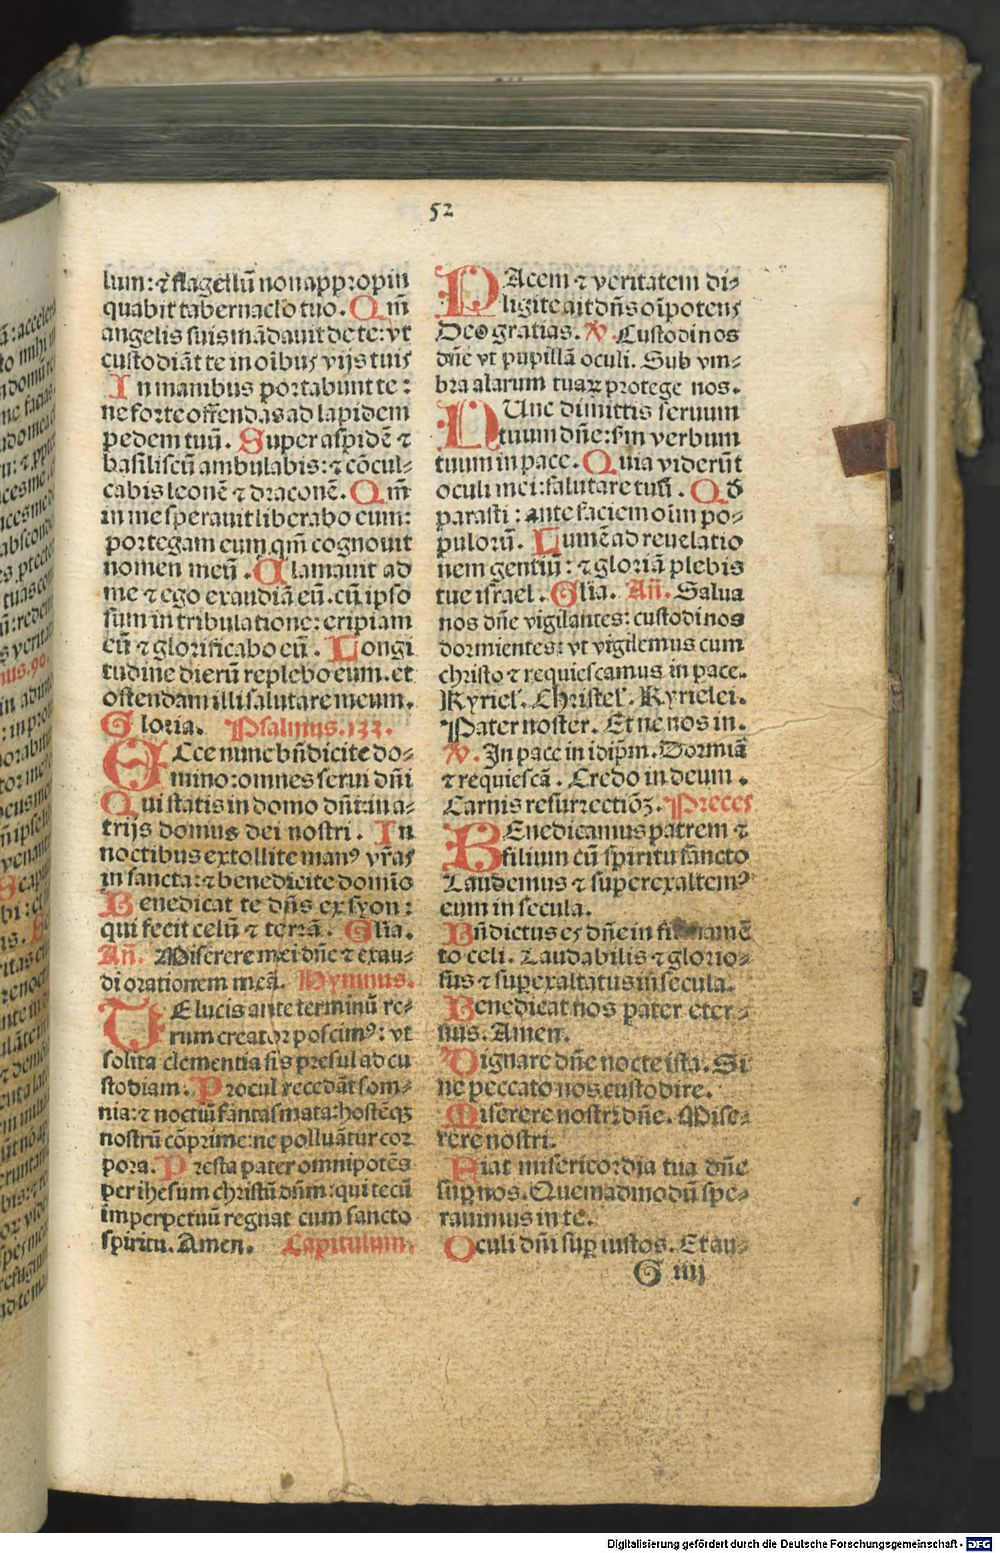 52
lum: ⁊ flagellū non appropin
quabit tabernaclo tuo. Qm̄
angelis suis mādauit de te: vt
custodiāt te in oībus vijs tuis
In manibus portabunt te:
ne forte offendas ad lapidem
pedem tuū. Super aspidē ⁊
basiliscū ambulabis: ⁊ cōcul⸗
cabis leonē ⁊ draconē. Qm̄
in me sperauit liberabo eum:
portegam eum qm̄ cognouit
nomen meū. Clamauit ad
me ⁊ ego exaudiā eū. cū ipso
sum in tribulatione: eripiam
eū ⁊ glorificabo eū. Longi
tudine dierū replebo eum. et
ostendam illi salutare meum.
Gloria. Psalmus. 133.
ECce nunc bn̄dicite do⸗
mino: omnes serui dn̄i
Qui statis in domo dn̄i: in a⸗
trijs domus dei nostri. In
noctibus extollite manꝰ vr̄as
in sancta: ⁊ benedicite domīo
Benedicat te dn̄s ex syon:
qui fecit celū ⁊ terrā. Glīa.
Añ. Miserere mei dn̄e ⁊ exau⸗
di orationem meā. Hymnus.
TE lucis ante terminū re⸗
rum creator poscimꝰ: vt
solita clementia sis presul ad cu
stodiam. Procul recedāt som⸗
nia: ⁊ noctiū fantasmata: hostēqꝫ
nostrū cōprime: ne polluātur cor
pora. Presta pater omnipotēs
per ihesum christū dn̄m: qui tecū
imperpetuū regnat cum sancto
spiritu. Amen. Capitulum.
PAcem ⁊ veritatem di⸗
ligite ait dn̄s oīpotens
Deo gratias. ℣. Custodi nos
dn̄e vt pupillā oculi. Sub vm⸗
bra alarum tuaꝝ protege nos.
NUnc dimittis seruum
tuum dn̄e: s̄m verbum
tuum in pace. Quia viderūt
oculi mei: salutare tuū. Qd̄
parasti: ante faciem oīm po⸗
pulorū. Lumē ad reuelatio
nem gentiū: ⁊ gloriā plebis
tue israel. Glīa. Añ. Salua
nos dn̄e vigilantes: custodi nos
dormientes: vt vigilemus cum
christo ⁊ requiescamus in pace.
Kyriel̄. Christel̄. Kyrielei.
Pater noster. Et ne nos in.
℣. In pace in idip̄m. Dormiā
⁊ requiescā. Credo in deum.
Carnis resurrectiōꝫ. Preces
BEnedicamus patrem ⁊
filium cū spiritu sancto
Laudemus ⁊ superexaltemꝰ
eum in secula.
Bn̄dictus es dn̄e in firmamē
to celi. Laudabilis ⁊ glorio⸗
sus ⁊ supexaltatus in secula.
Benedicat nos pater eter⸗
nus. Amen.
Dignare dn̄e nocte ista. Si
ne peccato nos custodire.
Miserere nostri dn̄e. Mise⸗
rere nostri.
Fiat misericordia tua dn̄e
sup nos. Quemadmodū spe⸗
rauimus in te.
Oculi dn̄i sup iustos. Et au⸗
G iiij
Digitalisierung gefördert durch die Deutsche Forschungsgemeinschaft - DFG